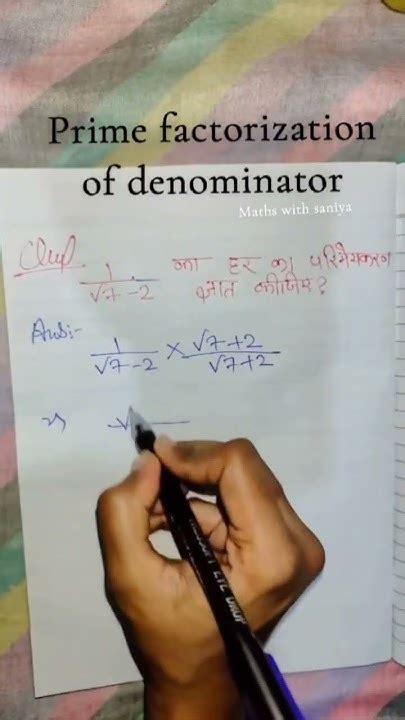 Prime factorization
of denominator
Maths with saniya
1/√7-2 का हर का परिमेयकरण
ज्ञात कीजिए?
Ans:-
1/√7-2 × √7+2/√7+2
√